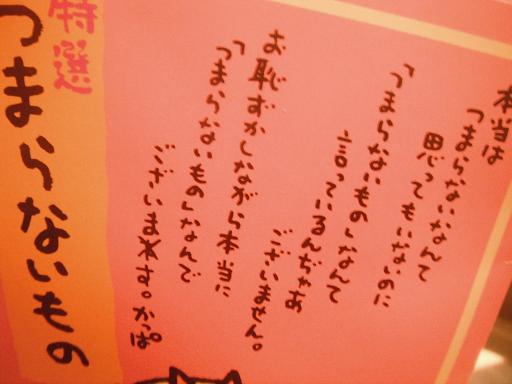 本当は
「つまらないなんて
思ってもいないのに
「つまらないもの」なんて
言っているんぢゃあ
ございません。
お恥ずかしながら本当に
「つまらないもの」なんで
ございます。かっぱ
特選
つまらないもの